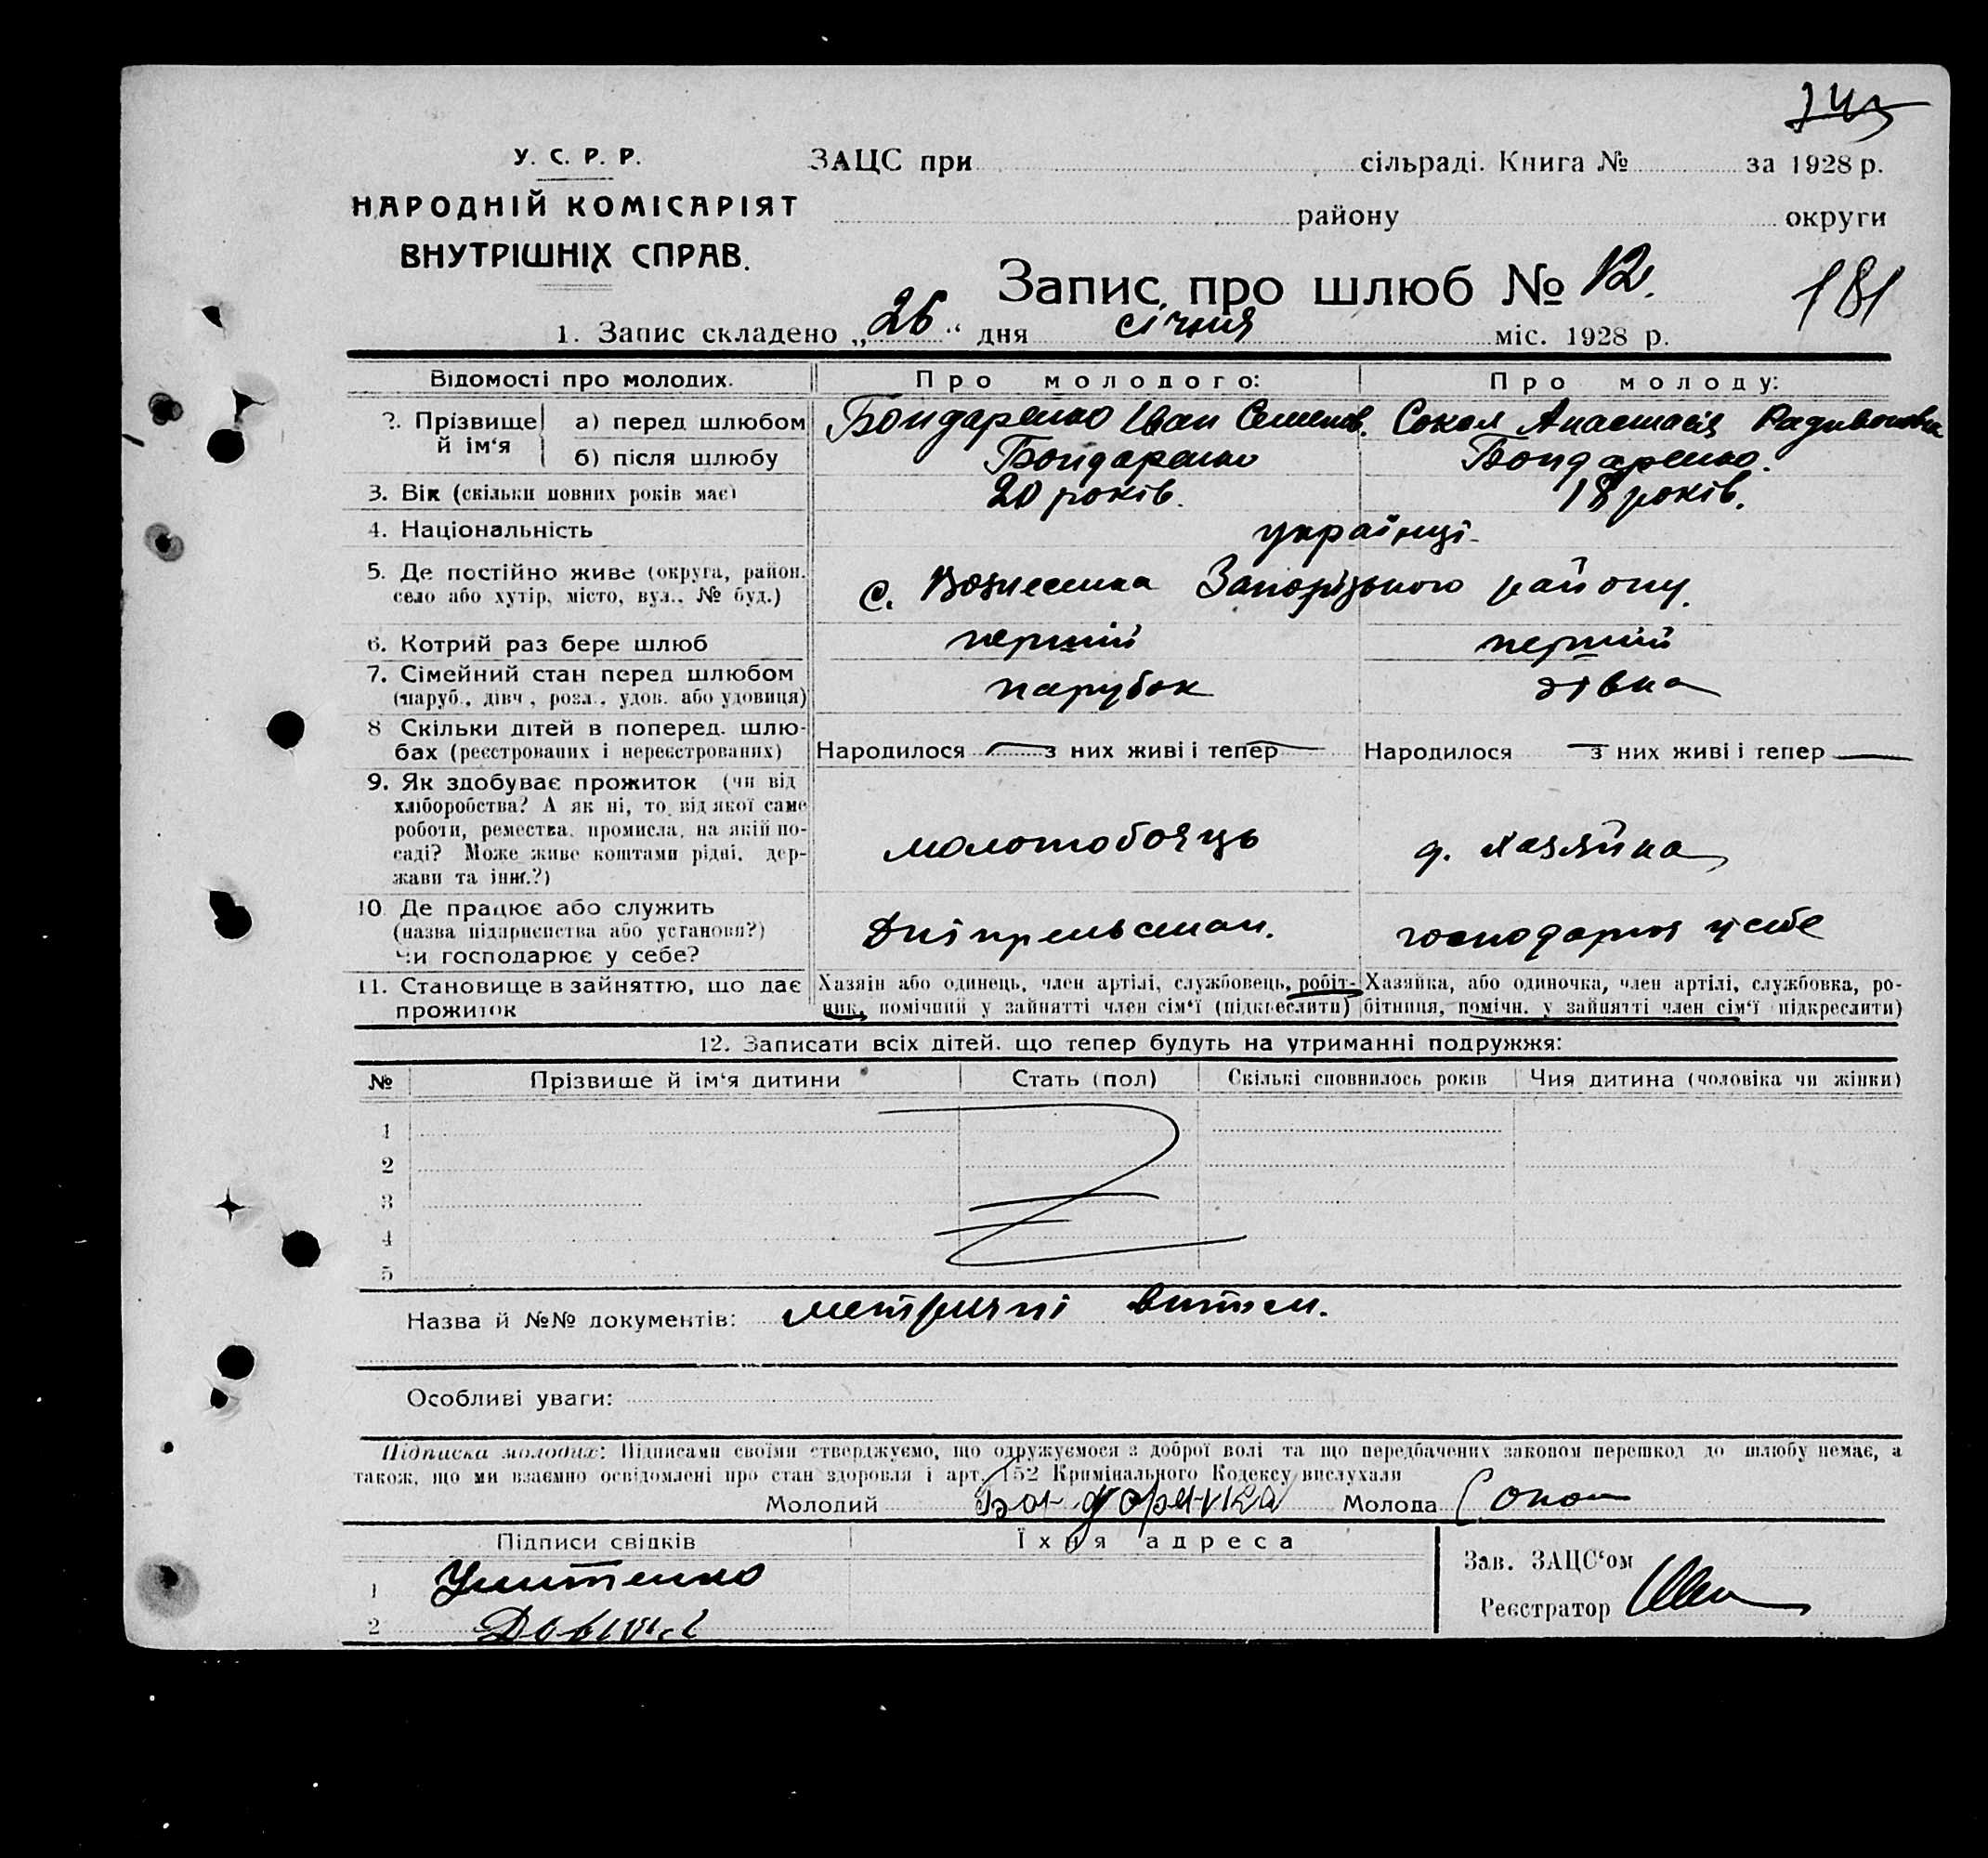 У. С. Р. Р.
НАРОДНІЙ КОМІСАРІЯТ
ВНУТРІШНІХ СПРАВ.
ЗАЦС при сільраді. Книга № за 1928 р.
району округи
Запис про шлюб № 12.
181
1. Запис складено „26“ дня січня міс. 1928 р.
Відомості про молодих. Про молодого: Про молоду:
2. Прізвище й ім‘я а) перед шлюбом Бондаренко Іван Семенов. Сокол Анастасія Радивоновна
б) після шлюбу Бондаренко Бондаренко.
3. Вік (скільки повних років має) 20 років. 18 років.
4. Національність українці
5. Де постійно живе (округа, район. село або хутір, місто, вул., № буд.) с. Вознесенка Запорізького району.
6. Котрий раз бере шлюб перший перший
7. Сімейний стан перед шлюбом парубок дівка
(паруб., дівч., розл., удов. або удовиця)
8 Скільки дітей в поперед. шлю-
бах (реєстрованих і нереєстрованих) Народилося з них живі і тепер Народилося з них живі і тепер
9. Як здобуває прожиток (чи від
хліборобства? А як ні, то від якої саме
роботи, ремества, промисла, на якій по-
саді? Може живе коштами рідні, дер-
жави та інш.?)
молотобоєць д. хазяйка
10. Де працює або служить
(назва підприємства або установи?)
Чи господарює у себе?
Дніпрельстан. господарює у себе
11. Становище в зайняттю, що дає
прожиток
Хазяїн або одинець, член артілі, службовець, робіт-
ник, помічний у зайнятті член сім‘ї (підкреслити)
Хазяйка, або одиночка, член артілі, службовка, ро-
бітниця, помічн. у зайнятті член сім‘ї підкреслити)
12. Записати всіх дітей. що тепер будуть на утриманні подружжя:
№ Прізвише й ім‘я дитини Стать (пол) Скількі сповнилось років Чия дитина (чоловіка чи жінки)
1
2
3
4
5
Назва й №№ документів: метричні витяги.
Особливі уваги:
Підписка молодих: Підписами своїми стверджуємо, що одружуємося з доброї волі та що передбачених законом перешкод до шлюбу немає, а
також, що ми взаємно освідомлені про стан здоровля і арт. 152 Кримінального Кодексу вислухали
Молодий Бондаренко Молода Сокол
Підписи свідків Їхня адреса
1
2
Зав. ЗАЦС‘ом
Реєстратор